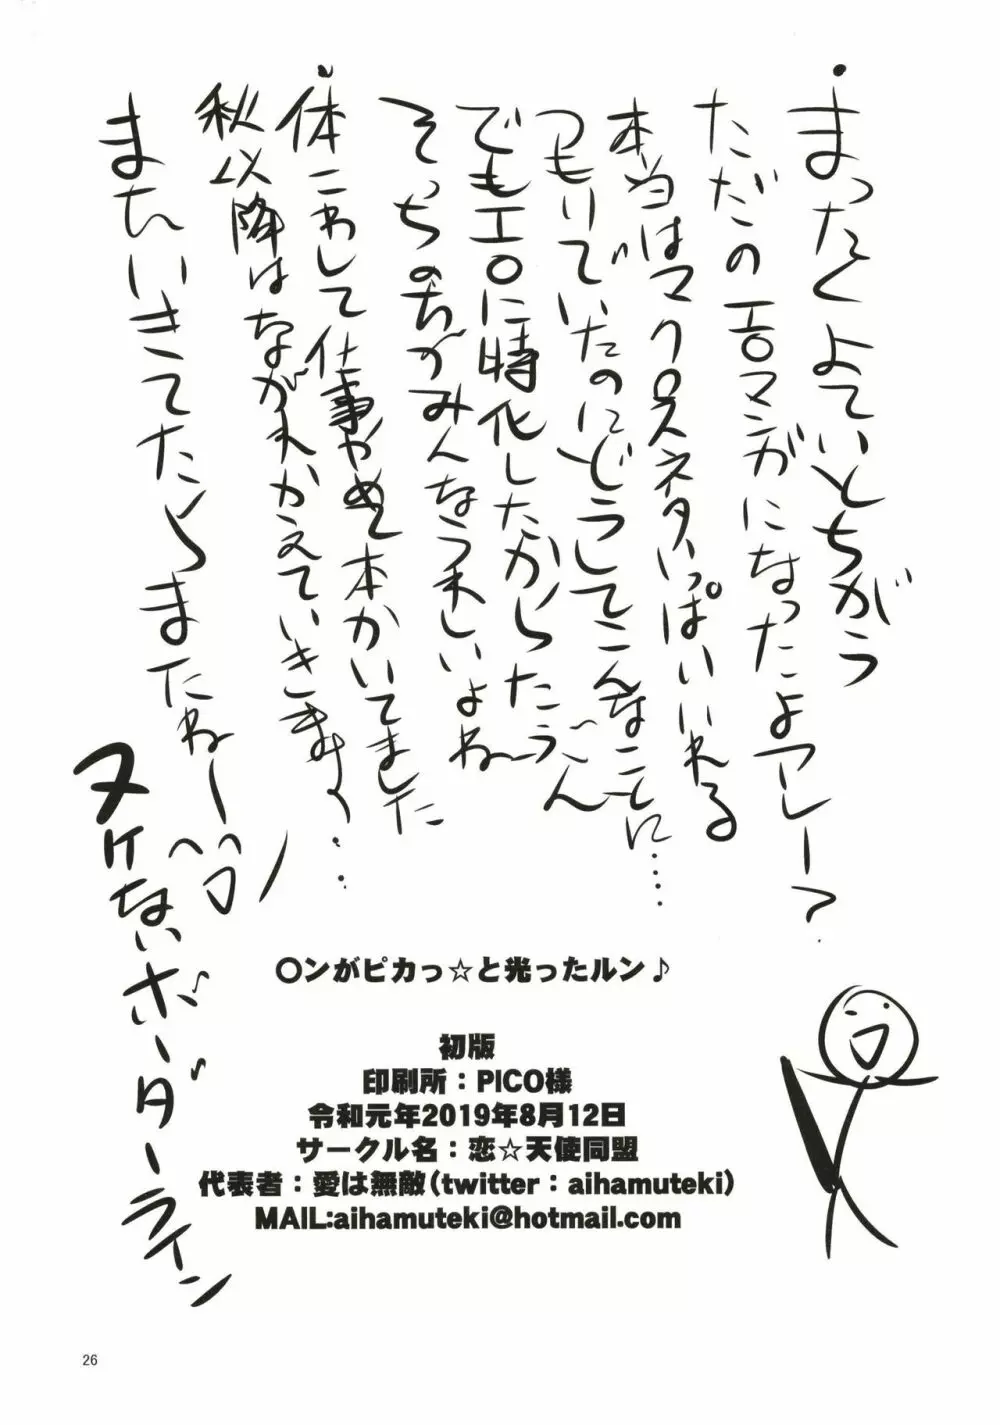 ・まったくよていとちがう
ただのエロマンガになったよアレー?
本当はマクロスネタいっぱいいれる
つもりでいたのにどうしてこんなことに……
でもエロに特化したからたぶん
そっちのちがみんなうれしいよね〜
・体こわして仕事やめて本かいてました
秋以降はながれかえていきます〜…
またいきてたらまたねー
ヌケないボーダーライン
〇ンがピカっ☆と光ったルン♪
初版
印刷所：PICO様
令和元年2019年8月12日
サークル名：恋☆天使同盟
代表者：愛は無敵(twitter：aihamuteki)
MAIL:aihamuteki@hotmail.com
26